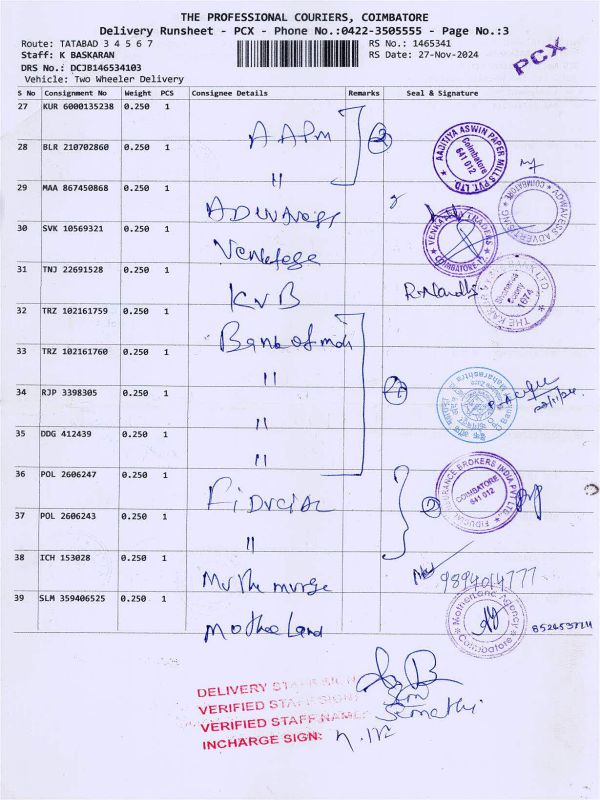 THE PROFESSIONAL COURIERS, COIMBATORE
Delivery Runsheet - PCX - Phone No.:0422-3505555 - Page No.:3
Route: TATABAD 3 4 5 6 7
Staff: K BASKARAN
DRS No.: DCJB146534103
Vehicle: Two Wheeler Delivery
RS No.: 1465341
RS Date: 27-Nov-2024
PCX
S No Consignment No Weight PCS Consignee Details Remarks Seal & Signature
27 KUR 6000135238 0.250 1
AAPM
2
28 BLR 210702860 0.250 1
"
AADITIYA ASWIN PAPER MILLS PVT. LTD.
Coimbatore
641 012
29 MAA 867450868 0.250 1
COIMBATORE
30 SVK 10569321 0.250 1
COIMBATORE-12
31 TNJ 22691528 0.250 1
KVB
R. Nandhi
1674
32 TRZ 102161759 0.250 1
Bank of
33 TRZ 102161760 0.250 1
"
34 RJP 3398305 0.250 1
"
35 DDG 412439 0.250 1
"
36 POL 2606247 0.250 1
Fiducial
2
COIMBATORE
641 012
37 POL 2606243 0.250 1
"
38 ICH 153028 0.250 1
9894014777
39 SLM 359406525 0.250 1
Mothee Land
Coimbatore
DELIVERY
VERIFIED STAFF SIGN:
VERIFIED STAFF NAME:
INCHARGE SIGN: